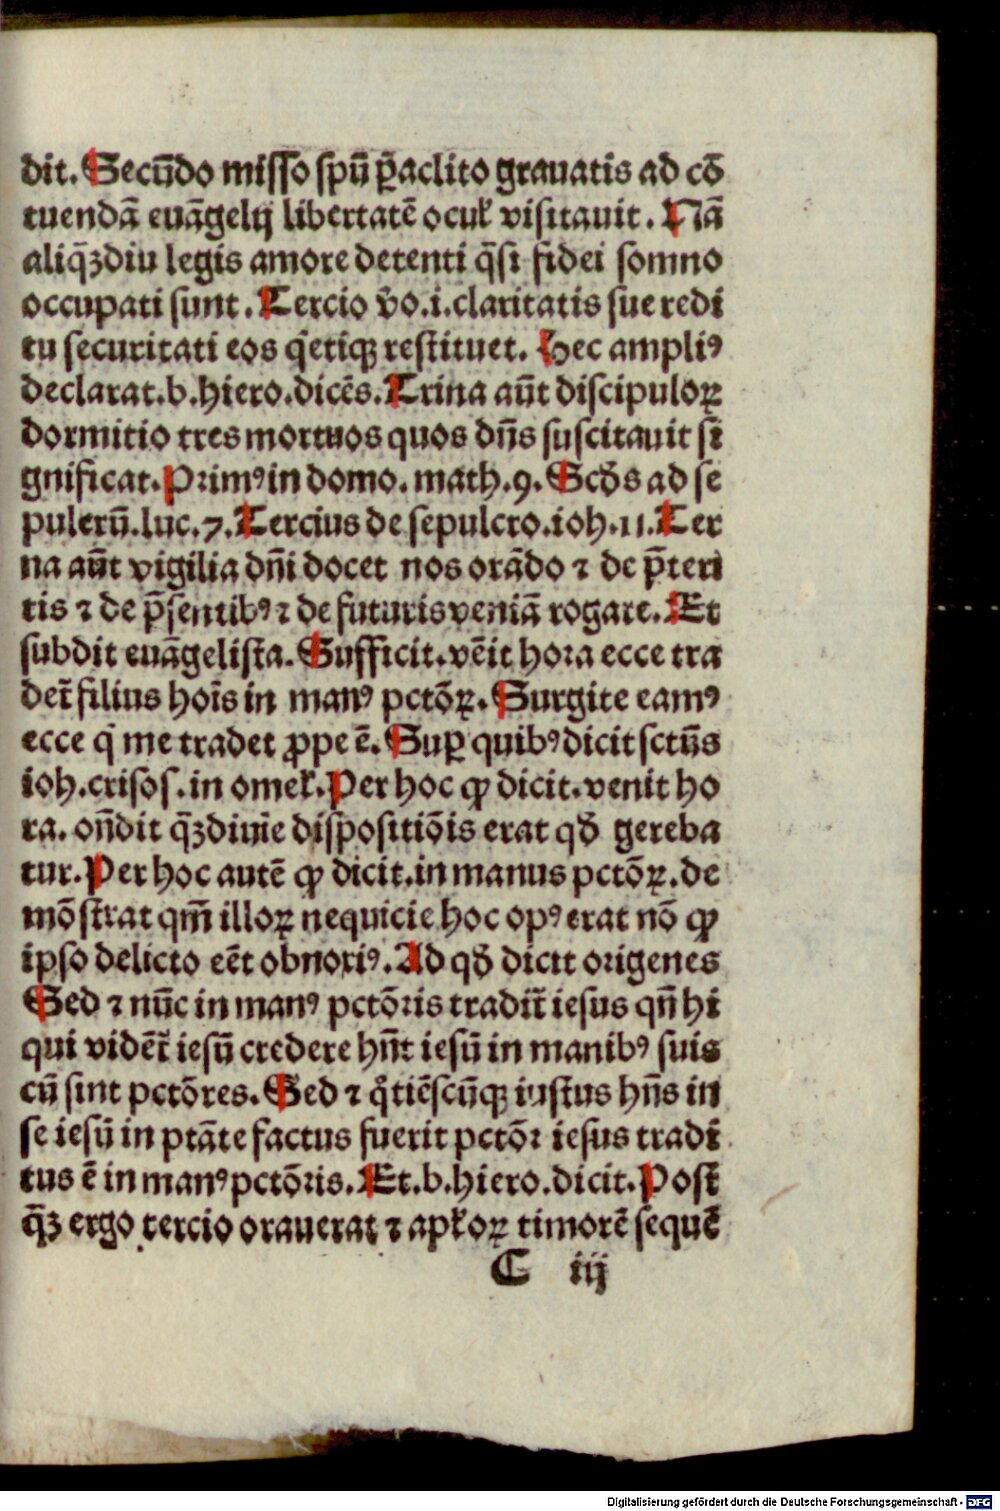 dit. Secūdo misso spū p̱aclito grauatis ad cō
tuendā euāgelij libertatē ocul̕ visitauit. Nā
aliq̄ꝫdiu legis amore detenti q̄si fidei somno
occupati sunt. Tercio v̄o.i.claritatis sue redi
tu securitati eos q̄etiqꝫ restituet. Hec ampliꝰ
declarat.b.hiero.dicēs. Trina aūt discipuloꝝ
dormitio tres mortuos quos dn̄s suscitauit si
gnificat. Primꝰ in domo. math.9. Scd̄s ad se
pulcrū.luc.7. Tercius de sepulcro.ioh.11. Ter
na aūt vigilia dn̄i docet nos orādo ⁊ de p̄teri
tis ⁊ de p̄sentibꝰ ⁊ de futuris veniā rogare. Et
subdit euāgelista. Sufficit.vēit hora ecce tra
det̄ filius hoīs in manꝰ pctōꝝ. Surgite eamꝰ
ecce q̇ me tradet ꝓpe ē. Suꝑ quibꝰ dicit sctūs
ioh.crisos.in omel̕. Per hoc ꝙ dicit.venit ho
ra. on̄dit q̄ꝫ diuīe dispositiōis erat qd̄ gereba
tur. Per hoc autē ꝙ dicit.in manus pctōꝝ.de
mōstrat qm̄ illoꝝ nequicie hoc opꝰ erat nō ꝙ
ipso delicto eēt obnoxiꝰ. Ad qd̄ dicit origenes
Sed ⁊ nūc in manꝰ pctōris tradit̄ iesus qn̄ hi
qui vidēt̄ iesū credere hn̄t iesū in manibꝰ suis
cū sint pctōres. Sed ⁊ q̊tiēscūqꝫ iustus hn̄s in
se iesū in ptāte factus fuerit pctōr iesus tradi
tus ē in manꝰ pctōris. Et.b.hiero.dicit. Post
q̄ꝫ ergo tercio orauerat ⁊ apl̕oꝝ timorē sequē
C iij
Digitalisierung gefördert durch die Deutsche Forschungsgemeinschaft - DFG